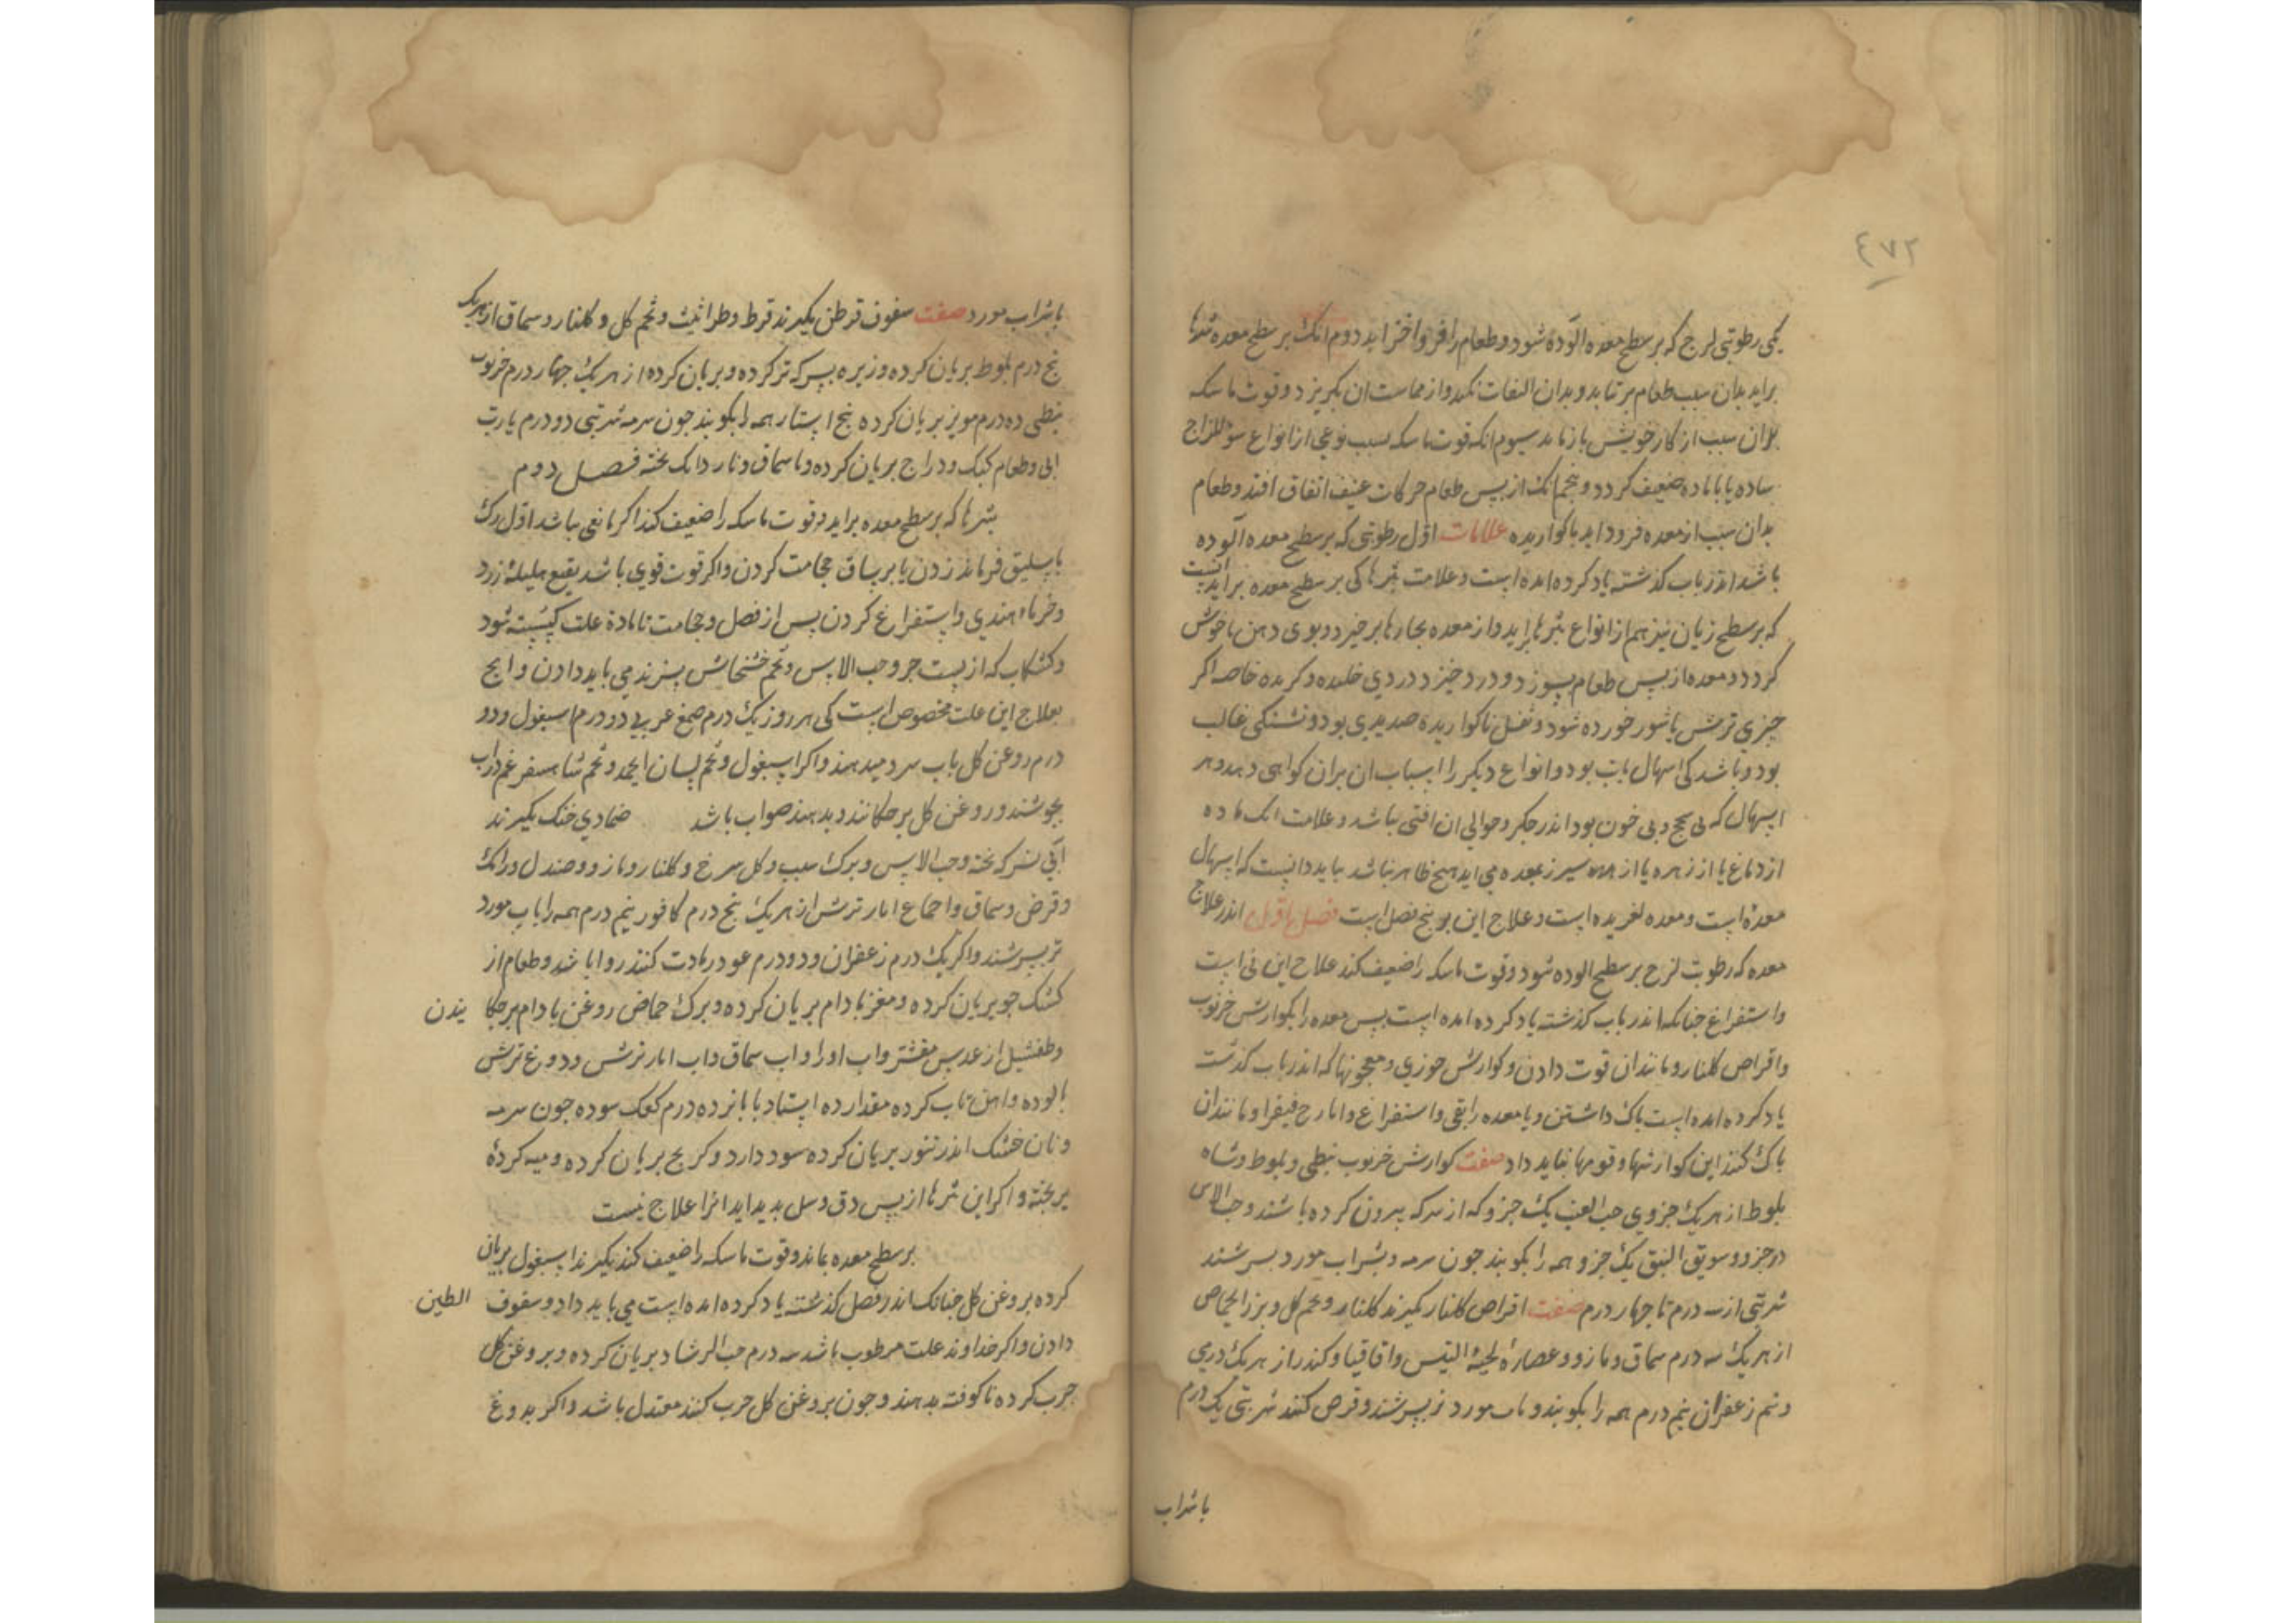 ٤٧٢
یکی رطوبتی لزج که بر سطح معده آلوده شود و طعام را فرو اخزاید دوم انک بر سطح معده بثرها
براید بدان سبب طعام بر نتابد و بدان التفات نکند و از مماست ان بکریزد و قوت ماسکه
بدان سبب از کار خویش باز ماند سیوم انکه قوت ماسکه بسبب نوعی از انواع سوالمزاج
ساده یا با ماده ضعیف کردد و پنجم انک از پس طعام حرکات عنیف اتفاق افتد و طعام
بدان سبب از معده فرود اید ناکواریده علامات اول رطوبتی که بر سطح معده آلوده
باشد اندر باب کذشته یاد کرده امده است و علامت بثرها کی بر سطح معده براید انست
که بر سطح زبان نیز هم از انواع بثرها براید و از معده بخارها برخیزد و بوی دهن ناخوش
کردد و معده از پس طعام بسوزد و درد خیزد دردی خلیده و کزنده خاصه اکر
چیزی ترش یا شور خورده شود و ثفل ناکواریده صدیدی بود و تشنکی غالب
بود و باشد کی اسهال بابت بود و انواع دیکر را اسباب ان بران کواهی دهد و هر
اسهال که بی سحج و بی خون بود اندر جکر و حوالی ان افتی نباشد و علامت انک ماده
از دماغ یا از زهره یا از سپرز بمعده می اید هیچ ظاهر نباشد بباید دانست که اسهال
معده است و معده لغزیده است و علاج این بر پنج فصل است فصل اول اندر علاج
معده که رطوبت لزج بر سطح الوده شود و قوت ماسکه را ضعیف کند علاج این قی است
و استفراغ چنانکه اندر باب کذشته یاد کرده امده است پس معده را بکوارش خرنوب
و اقراص کلنار و مانند ان قوت دادن و کوارش خوزی و معجونها که اندر باب کذشت
یاد کرده امده است پاک داشتن و یا معده را بقی و استفراغ و ایارج فیقرا و مانند ان
پاک کنند این کوارشها و قومها نباید داد صفت کوارش خرنوب نبطی و بلوط و شاه
بلوط از هر یک جزوی حب العنب یک جزو که از سرکه بیرون کرده باشند و حب الاس
دو جزو و سویق النبق یک جزو همه را بکوبند چون سرمه و بشراب مورد بسرشند
شربتی از سه درم تا چهار درم صفت اقراص کلنار بکیرند کلنار و تخم کل و بزر الحماض
از هر یک سه درم سماق و مازو و عصاره لحیة التیس و اقاقیا و کندر از هر یک درمی
و نیم زعفران نیم درم همه را بکوبند و باب مورد تر بسرشند و قرص کنند شربتی یک درم
با شراب
با شراب مورد صفت سفوف قرطن بکیرند قرط و طراثیث و تخم کل و کلنار و سماق از هر یک
پنج درم بلوط بریان کرده و زیره بسرکه تر کرده و بریان کرده از هر یک چهار درم خرنوب
نبطی ده درم مویز بریان کرده پنج استار همه را بکوبند چون سرمه شربتی دو درم یا رب
ابی و طعام کبک و دراج بریان کرده و با سماق و ناردانک پخته فصل دوم
بثرها که بر سطح معده براید و قوت ماسکه را ضعیف کند اکر مانعی نباشد اول رک
باسلیق فرمایند زدن یا بر ساق حجامت کردن و اکر قوت قوی باشد بنقیع هلیله زرد
و خرماء هندی و استفراغ کردن پس از فصد و حجامت تا ماده علت کسسته شود
و کشکاب که از پست جو و حب الاس و تخم خشخاش پزند می باید دادن و انچ
بعلاج این علت مخصوص است کی هر روز یک درم صمغ عربی دو درم اسبغول و دو
درم روغن کل باب سرد میدهند و اکر اسبغول و تخم لسان الحمل و تخم شاهسفرغم در اب
بجوشند و روغن کل بر چکانند و بدهند صواب باشد ضمادی خنک بکیرند
ابی بسرکه پخته و حب الاس و برک سیب و کل سرخ و کلنار و مازو و صندل و رامک
و قرض و سماق و اقماع انار ترش از هر یک پنج درم کافور نیم درم همه را باب مورد
تر بسرشند و اکر یک درم زعفران و دو درم عود زیادت کنند روا باشد و طعام از
کشک جو بریان کرده و مغز بادام بریان کرده و برک حماض روغن بادام بر چکا نیدن
و طفشیل از عدس مقشر و اب او را و اب سماق و اب انار ترش و دوغ ترش
پالوده و اهن تاب کرده مقدار ده استاد با پانزده درم کعک سوده چون سرمه
و نان خشک اندر تنور بریان کرده سود دارد و کرنج بریان کرده و میه کرده
بر پخته و اکر این بثرها از پس دق و سل بدید اید انرا علاج نیست
بر سطح معده بماند و قوت ماسکه را ضعیف کند بکیرند اسبغول بریان
کرده بروغن کل چنانک اندر فصل کذشته یاد کرده امده است می باید داد و سفوف الطین
دادن و اکر خداوند علت مرطوب باشد سه درم حب الرشاد بریان کرده و بروغن کل
چرب کرده ناکوفته بدهند و چون بروغن کل چرب کنند معتدل باشد و اکر بدوغ